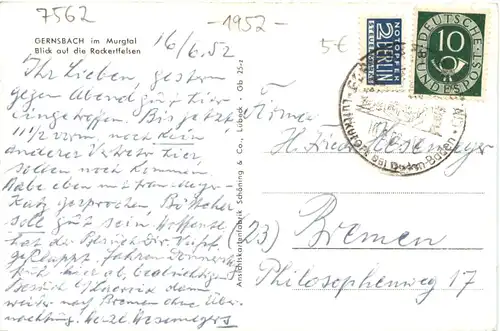 7562
-1952-
5€
GERNSBACH im Murgtal
Blick auf die Rockertfelsen
16/6.52
Ihr Lieben, gestern
gegen Abend gut hier
eingetroffen. Bis jetzt
11½ Uhr noch kein
anderer Vertreter hier,
sollen noch kommen.
Habe eben mit
gesprochen, Böttcher
soll gut sein. Hoffentl.
hat der Besuch Dir.
geklappt. Fahren Donnerstag
früh hier ab, beabsichtigen
Besuch dann
weiter nach Bremen ohne Über-
nachtung. Herzl.
Ansichtskartenfabrik Schöning & Co., Lübeck · Gb 25-z
NOTOPFER
2 BERLIN
STEUERMARKE
DEUTSCHE
10
BUNDESPOST
Luftkurort
bei Baden-Baden
Firma
H. Friedr.
(23) Bremen
Philosophenweg 17